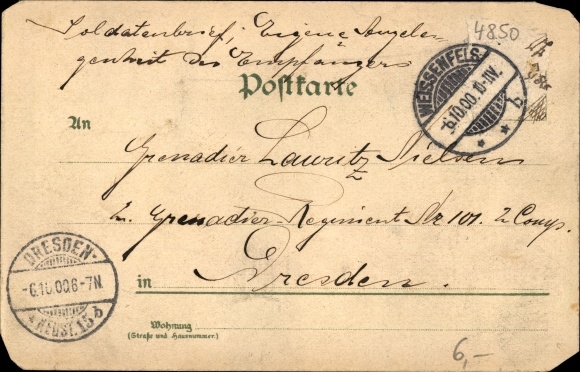 Soldatenbrief; Eigene Angele-
genheit des Empfängers
4850
Postkarte
WEISSENFELS
6.10.00.10-11V.
b
An
Grenadier Lauritz Nielsen
2. Grenadier-Regiment Nr 101. 2 Comp.
DRESDEN-
-6.10.00.6-7N.
NEUST. 15 b
in
Dresden.
Wohnung
(Straße und Hausnummer.)
6,-